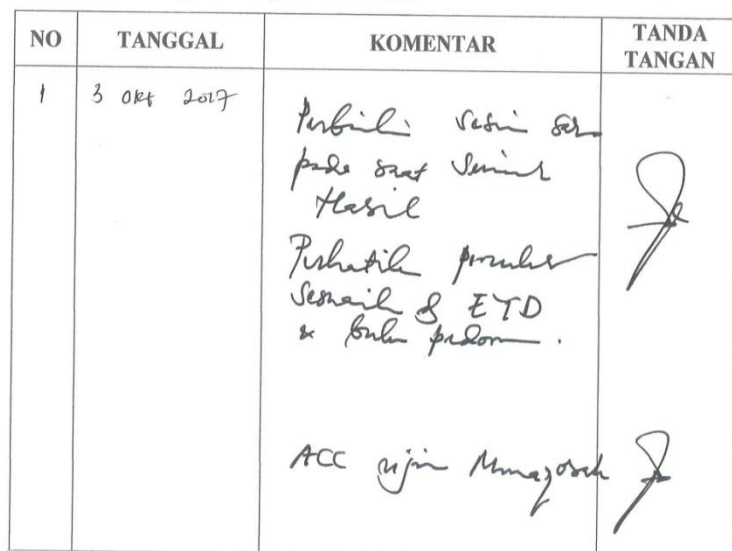 NO TANGGAL KOMENTAR TANDA TANGAN
1 3 Okt 2017 Perbaiki sesuai saran
pada saat Seminar
Hasil
Perhatikan penulisan
Sesuaik & EYD
& buku pedoman.
ACC ujian Munaqosah